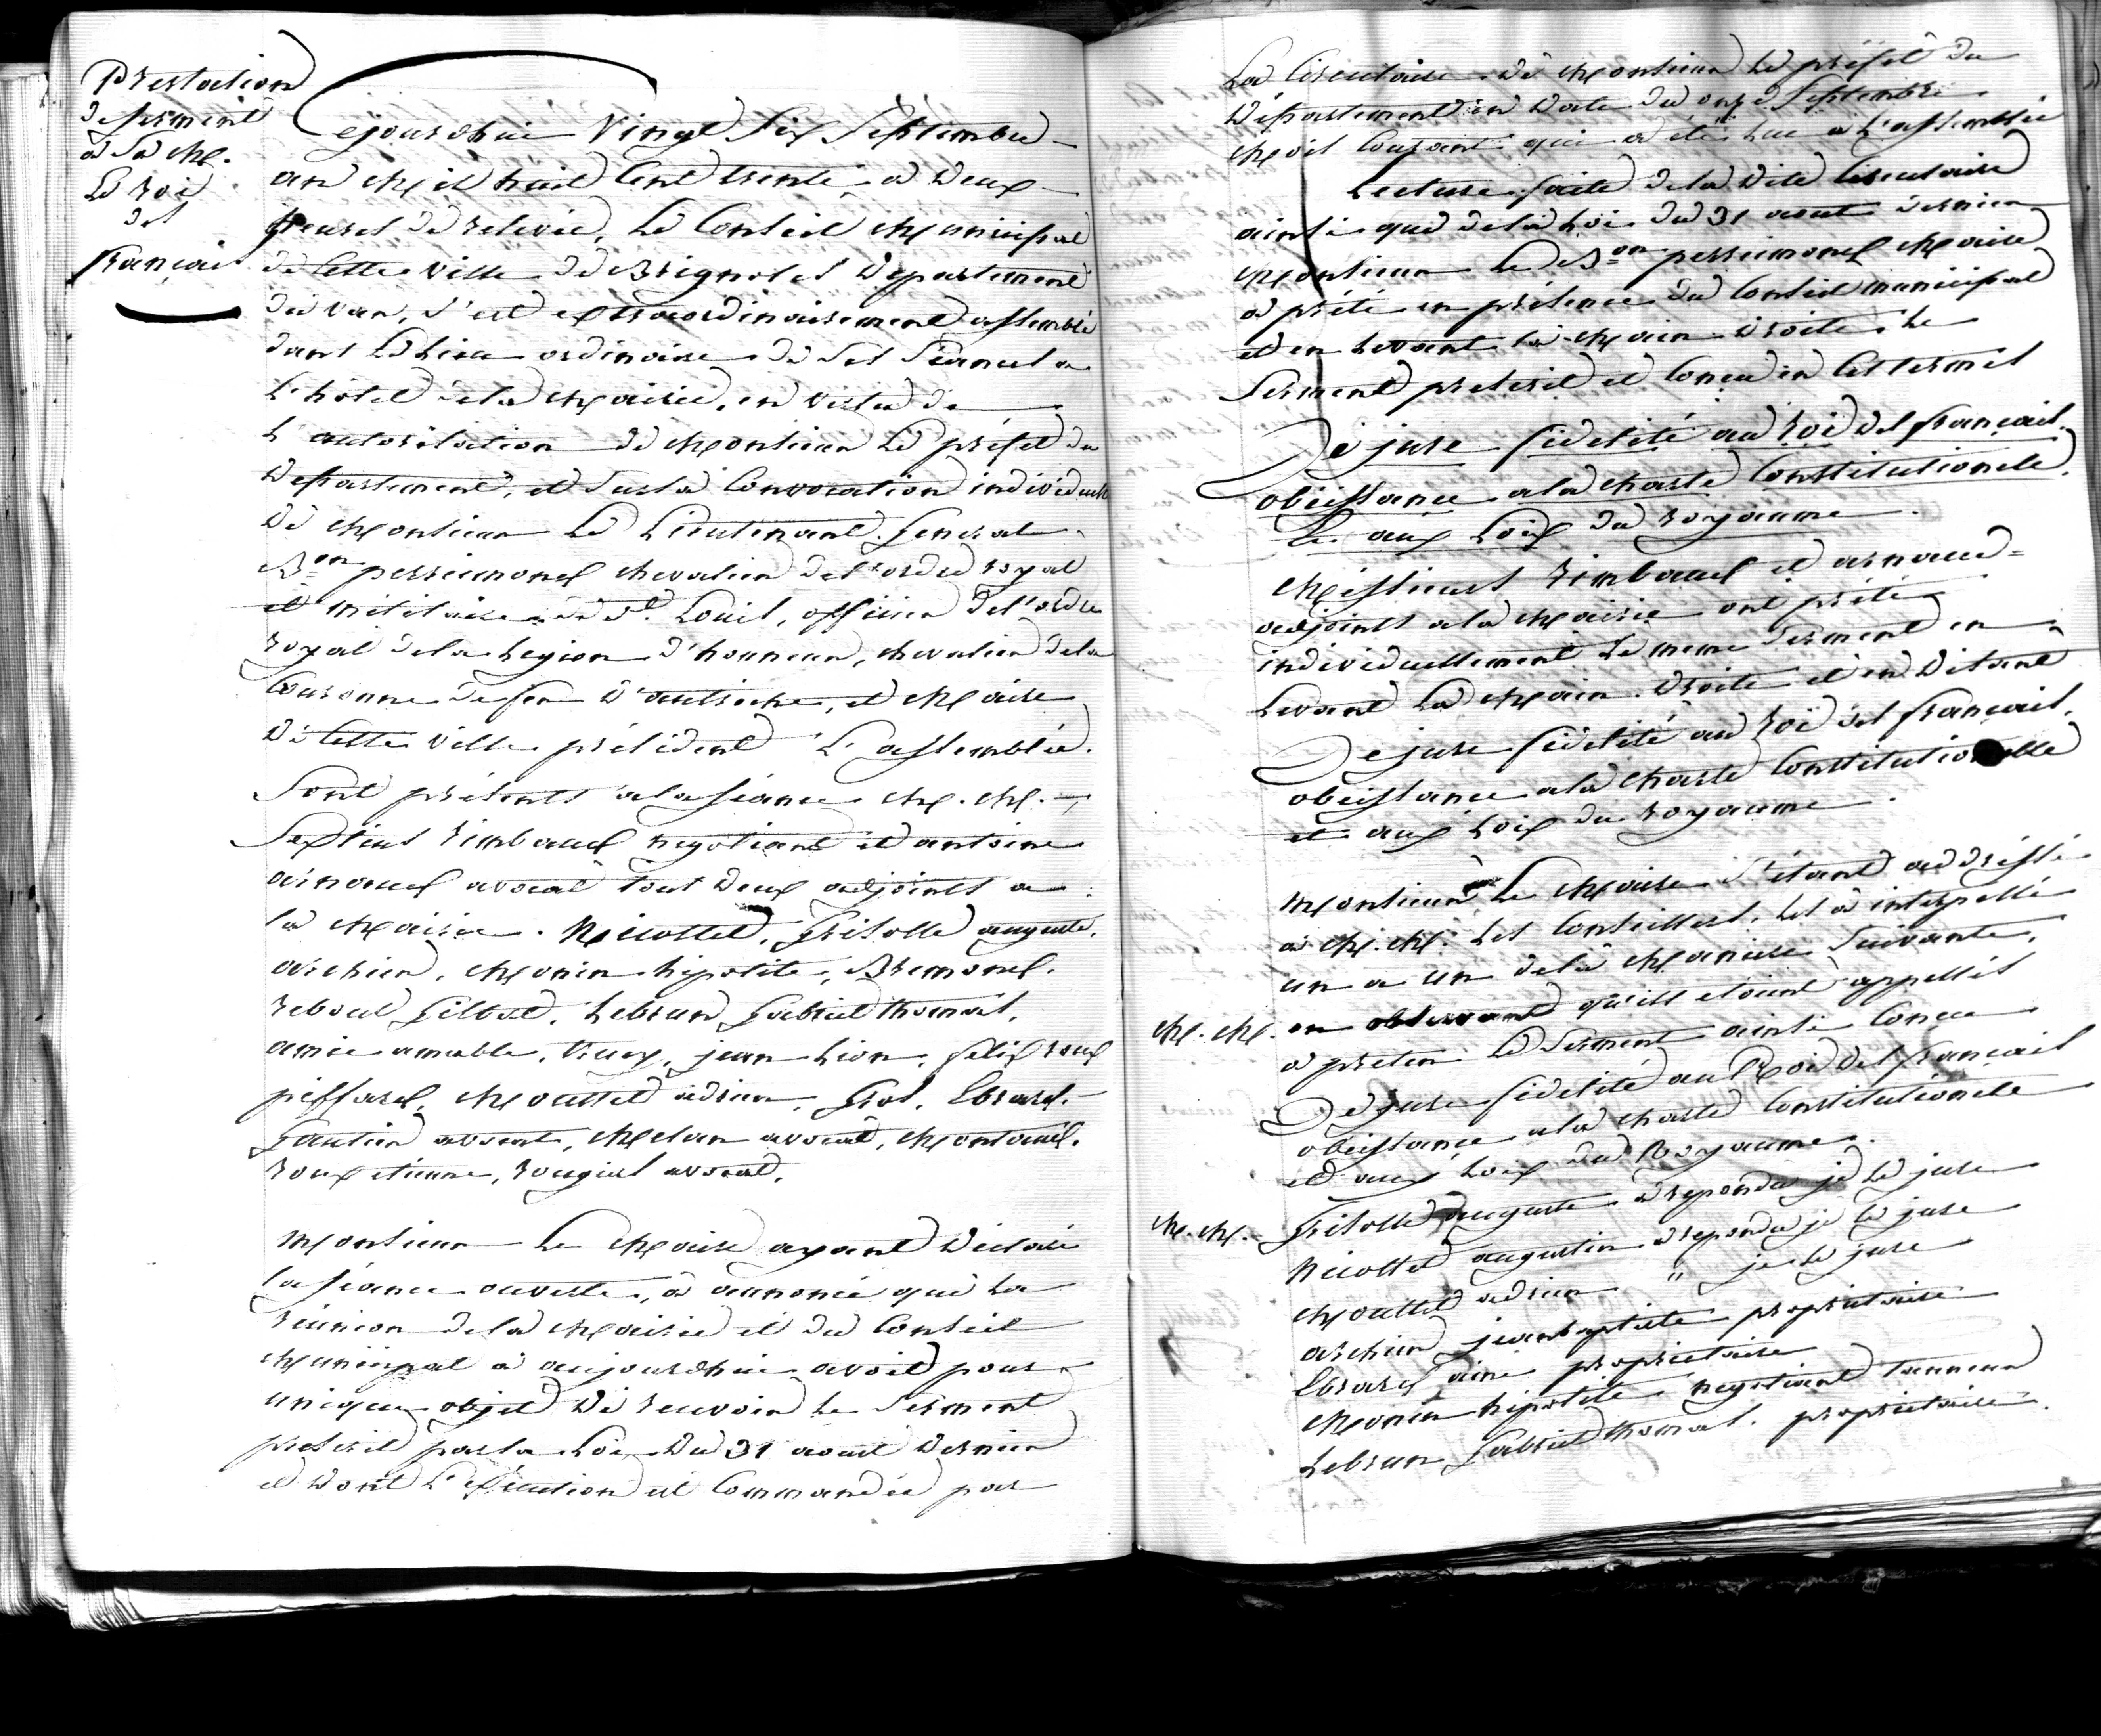 Prestation
de serment
à Sa M.
Le roi
des
français
Cejourd'hui Vingt Six Septembre
an Mil huit Cent trente, à Deux
heures de relevée, Le Conseil Municipal
de Cette Ville de Brignoles Département
du Var, s'est extraordinairement assemblé
dans Le Lieu ordinaire de Ses Séances a
L'hôtel de la Mairie, en vertu de
L'autorisation de Monsieur Le préfet du
Département, et Sur la Convocation individuelle
de Monsieur Le Lieutenant General
Bon perreimond chevalier de l'ordre royal
et militaire de St. Louis, officier de l'ordre
royal de la Legion d'honneur, chevalier de la
Couronne de fer d'autriche, et Maire
de Cette Ville président L'assemblée.
Sont présents a la séance M. M.
Sextius rimbaud negotiant et antoine
arnaud avocat tous deux adjoints a
la Mairie. Nicollet, Grisolle auguste,
archier, Monin hipolite, Bremond,
reboul Gilbert, Lebrun Gabriel thomas,
amic amable, jean Lion, felix roux
piffard, Mouttet adrien, Gros, Ebrard,
Gautier avocat, Melan avocat, Montaud,
roux etienne, rougiers avocat.
Monsieur Le Maire ayant déclaré
la séance ouverte, a annoncé que La
réunion de la Mairie et du Conseil
Municipal à aujourd'hui avoit pour
unique objet de recevoir Le Serment
prescrit par la Loi du 31 aout dernier
et dont L'exécution est Commandée par
La Circulaire de Monsieur Le préfet du
Département en date du onze Septembre
Mois Courant qui a été Lue à L'assemblée
Lecture faite de la dite Circulaire
ainsi que de la Loi du 31 aout dernier
Monsieur Le Bon perreimond Maire
a prété en présence du Conseil municipal
et en Levant la Main droite Le
Serment prescrit et Conçu en Ces termes
Je jure fidelité au Roi des français,
obeissance a la charte Constitutionele
et aux Loix du royaume.
Messieurs rimbaud et arnaud
adjoints a la Mairie ont prété
individuellement Le meme Serment en
Levant La Main droite et en disant
Je jure fidelité au Roi des français,
obeissance a la charte Constitutionelle
et aux Loix du royaume.
Monsieur Le Maire s'étant addréssé
à M. M. Les Conseillers, Les a interpellé
un a un de la Maniere Suivante,
en observant qu'ils etoient appellés
a preter Le Serment ainsi Conçu
Je jure fidelité au Roi des français
obeissance a la charte Constitutionele
et aux Loix du Royaume.
M. M. Grisolle auguste a repondu je Le jure
Nicollet augustin a repondu je Le jure
Mouttet adrien " je Le jure
archier jean baptiste propriétaire
Ebrard ainé propriétaire
Monin hipolite negotiant tanneur
Lebrun Gabriel thomas. propriétaire.